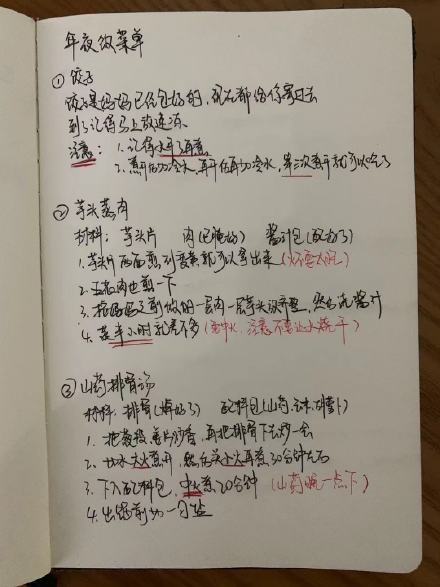 年夜饭菜单
① 饺子
饺子是妈妈已经包好的,现在都给你寄回去
到了记得马上放速冻
注意:1.记得水开了再煮
2.煮开后加冷水,再开后再加冷水,第三次煮开就可以吃了
② 芋头蒸肉
材料:芋头片 肉(已腌好) 酱汁包(配好了)
1.芋头片两面煎到变黄就可以拿出来(火不要太大)
2.五花肉也煎一下
3.按妈妈之前做的一层肉一层芋头放齐整,然后浇酱汁
4.蒸半小时就差不多(要中火,注意不要让水烧干)
③ 山药排骨汤
材料:排骨(焯好了) 配料包(山药、玉米、胡萝卜)
1.把葱段、姜片炒香,再把排骨下去炒一会
2.加水大火煮开,然后关小火再煮30分钟左右
3.下入配料包,中火煮20分钟(山药晚一点下)
4.出锅前加一勺盐